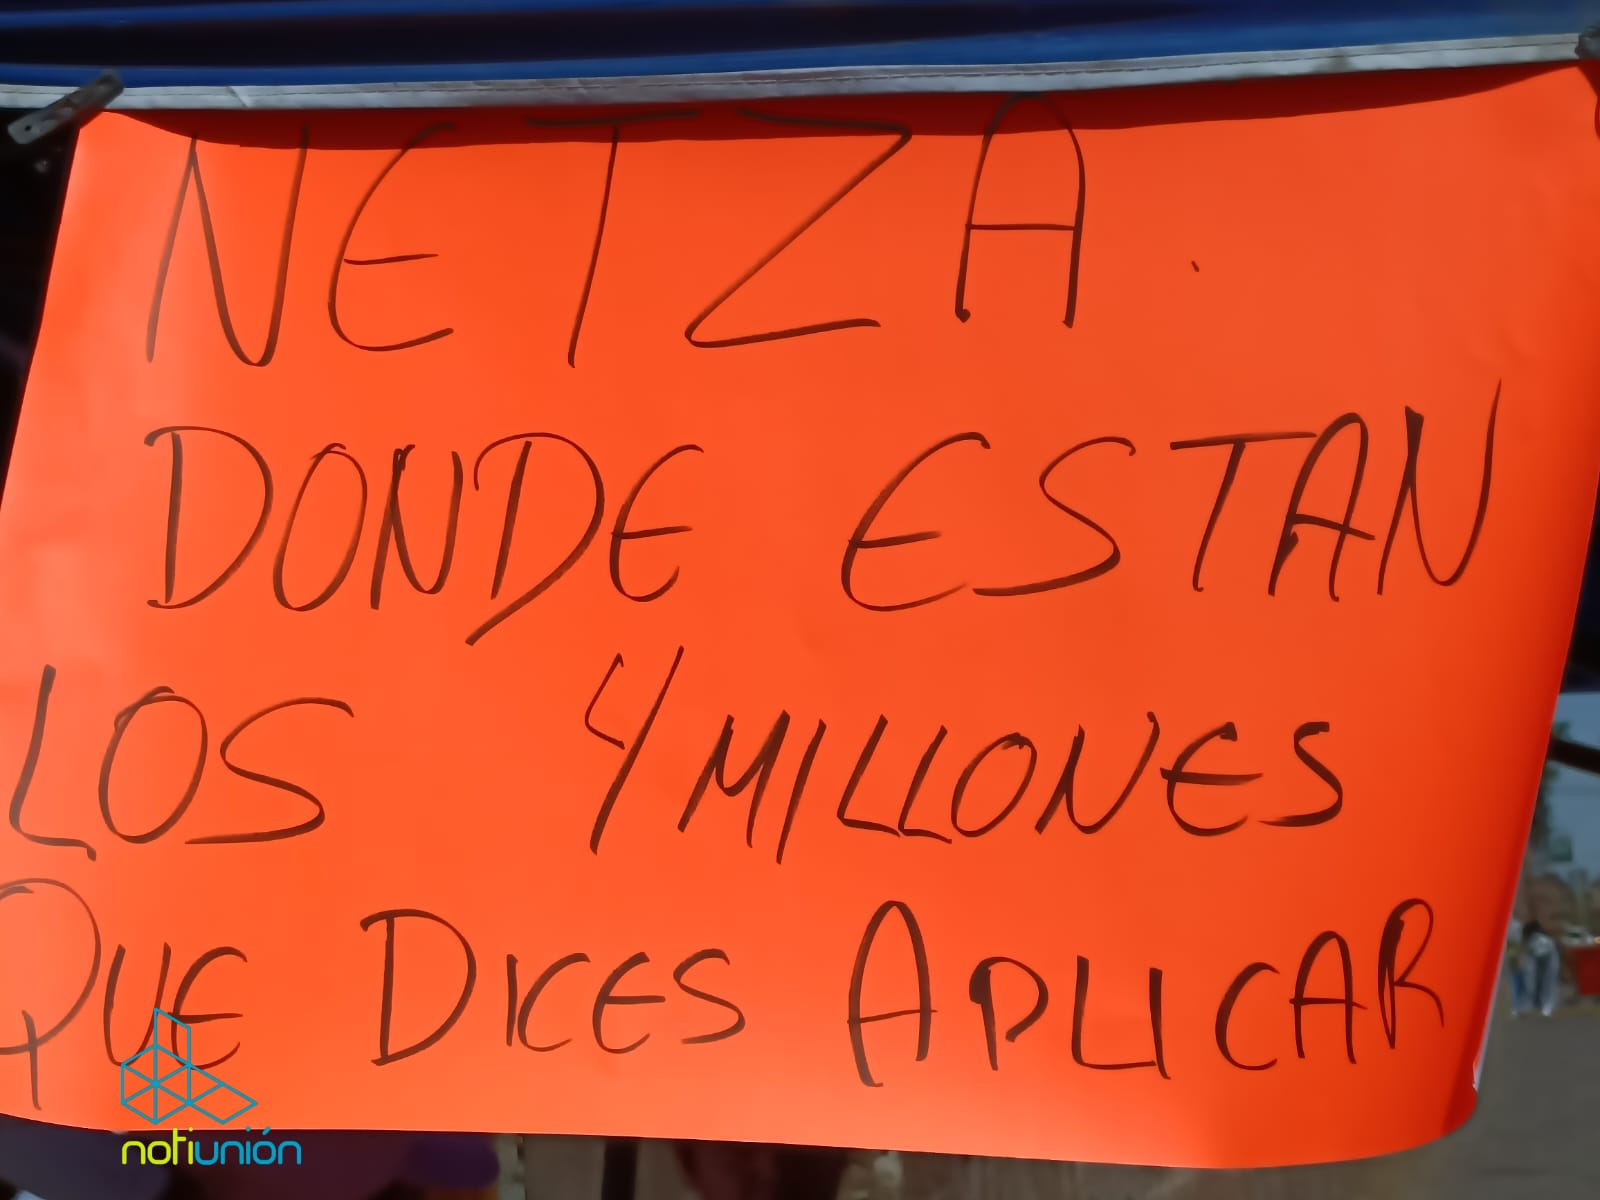 NETZA.
DONDE ESTAN
LOS 4 MILLONES
QUE DICES APLICAR
notiunión